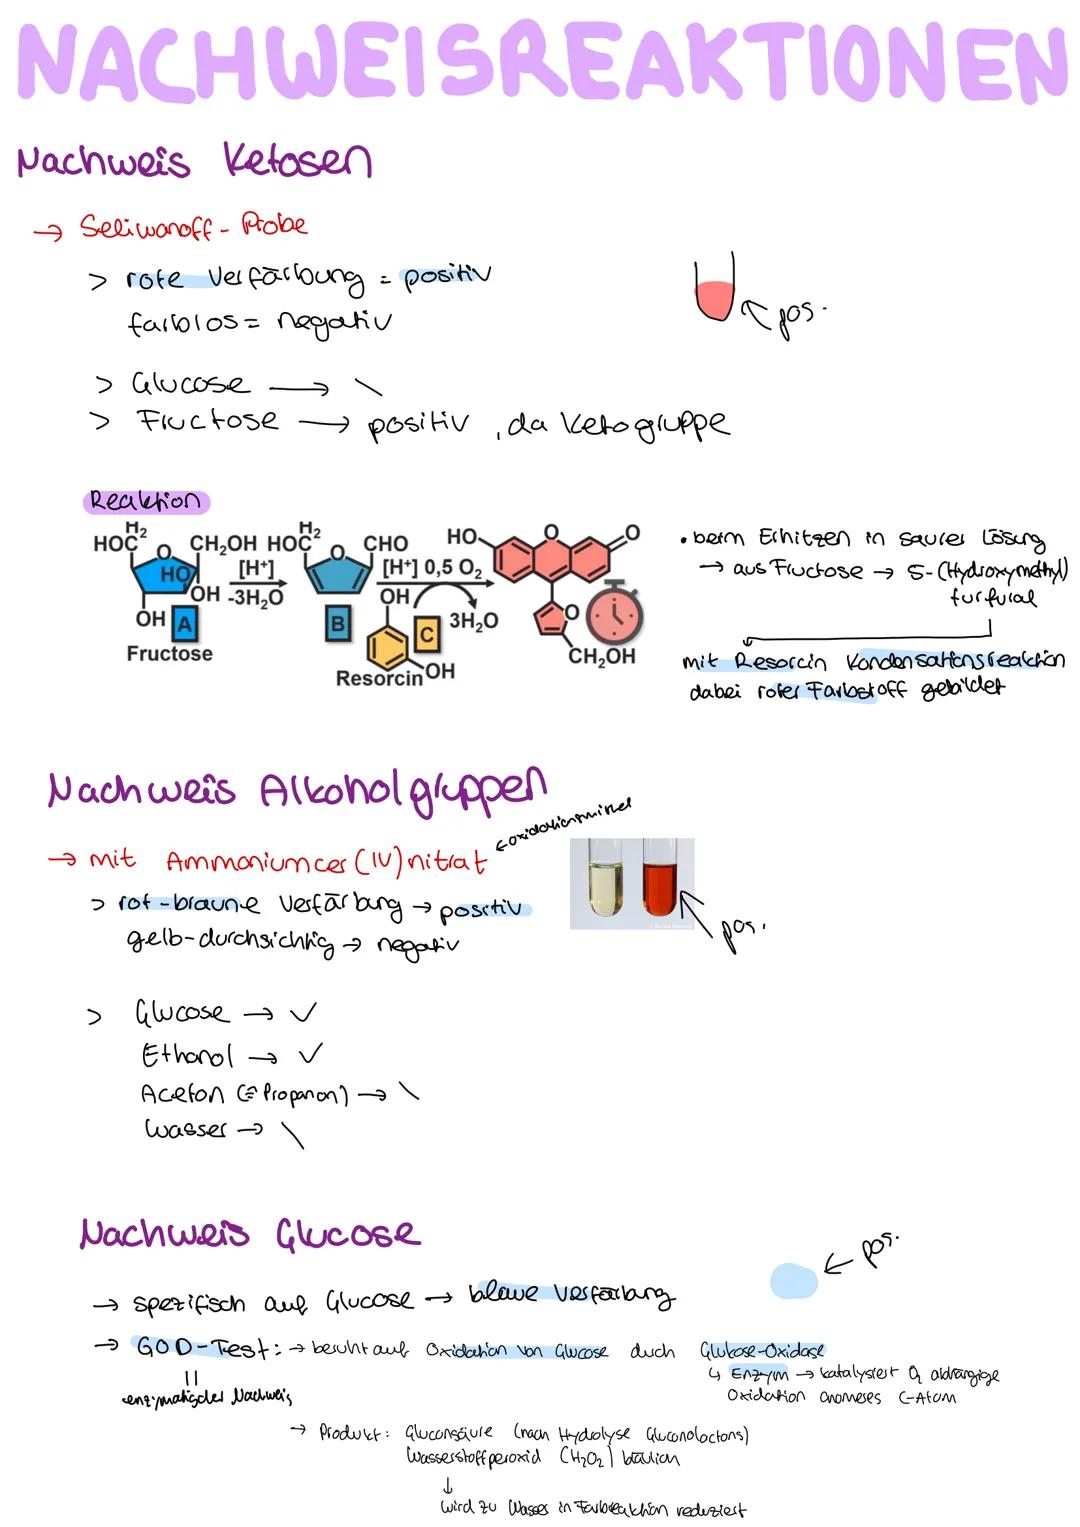 NACHWEISREAKTIONEN
Nachweis Ketosen
→ Seliwanoff-Probe
> rote Verfärbung = positiv
farblos = negativ
pos.
> Glucose → \
> Fructose → positiv, da Ketogruppe
Reaktion
H₂
HOC
O
CH₂OH
HO
OH
OH
A
Fructose
[H⁺]
-3H₂O
H₂
HOC
O
CHO
B
[H⁺] 0,5 O₂
OH
C
OH
Resorcin
3H₂O
HO
O
O
O
CH₂OH
• beim Erhitzen in saurer Lösung
→ aus Fructose → 5-(Hydroxymethyl)
furfural
mit Resorcin Kondensationsreaktion
dabei roter Farbstoff gebildet
Nachweis Alkoholgruppen
→ mit Ammoniumcer(IV)nitrat
← Oxidationsmittel
> rot-braune Verfärbung → positiv
gelb-durchsichtig → negativ
pos.
> Glucose → ✓
Ethanol → ✓
Aceton (≙ Propanon) → \
Wasser → \
Nachweis Glucose
pos.
→ spezifisch auf Glucose → blaue Verfärbung
→ GOD-Test: → beruht auf Oxidation von Glucose duch Glukose-Oxidase
enzymatischer Nachweis
↳ Enzym → katalysiert O₂ abhängige
Oxidation anomeres C-Atom
→ Produkt: Gluconsäure (nach Hydrolyse Gluconolactons)
Wasserstoffperoxid (H₂O₂) bläulich
↓
wird zu Wasser in Farbreaktion reduziert